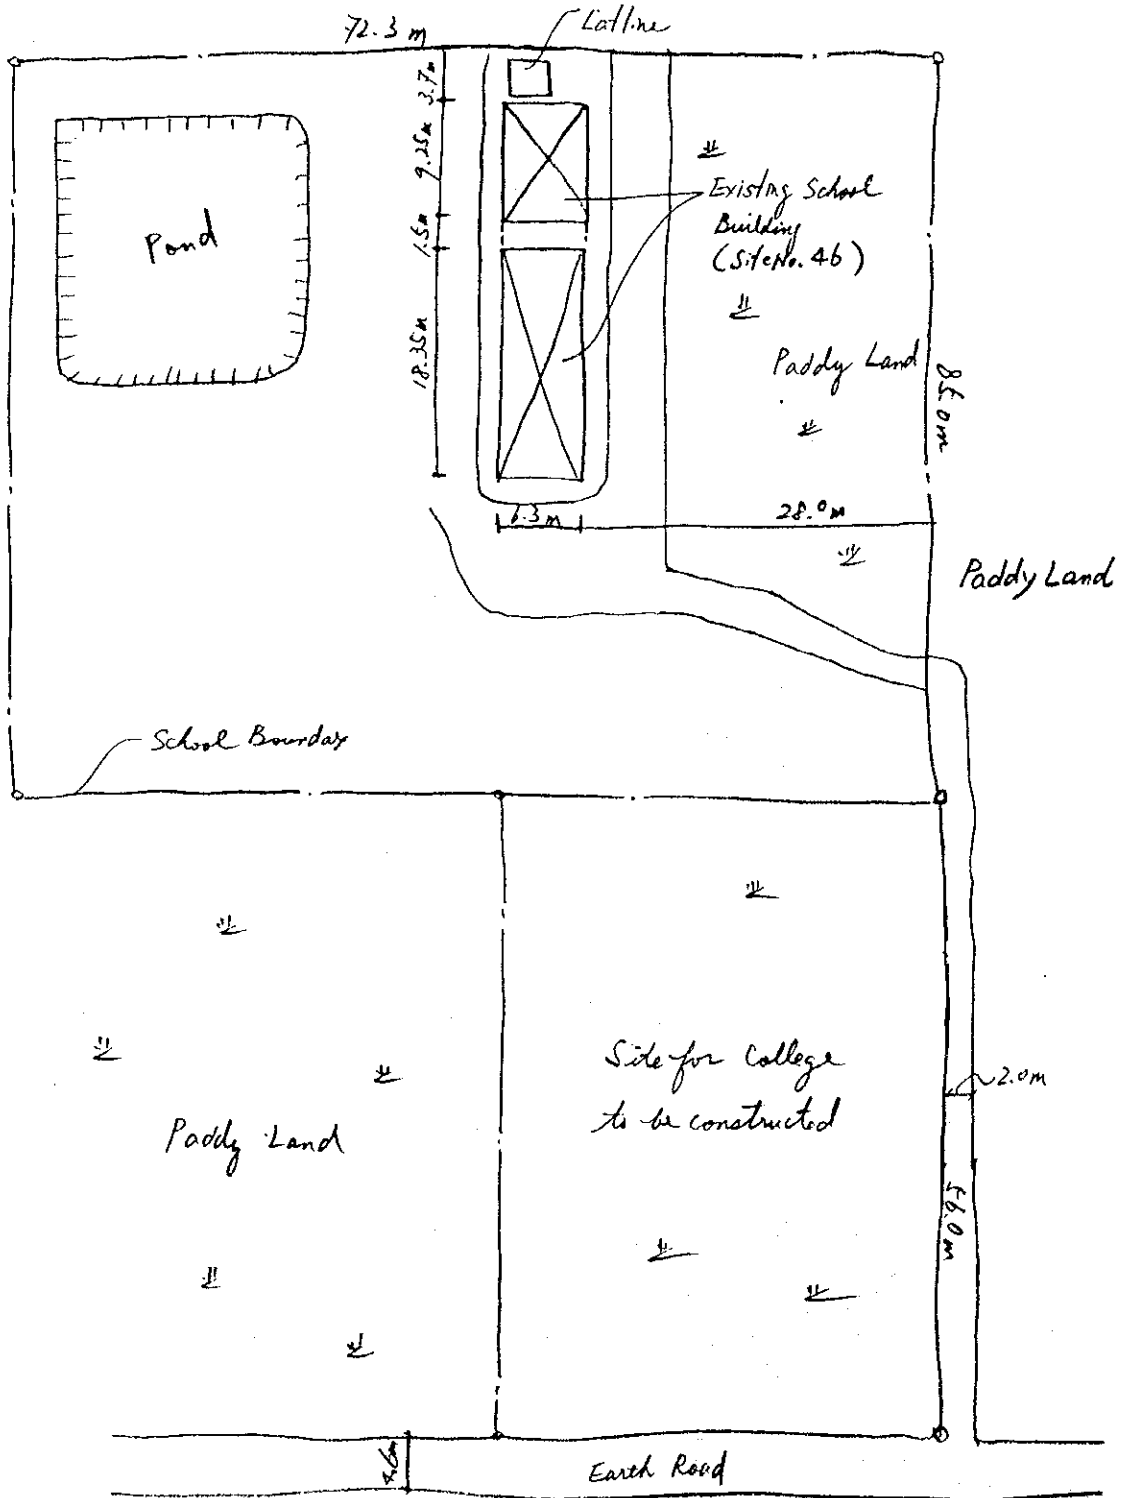 72.3 m
Latline
3.7m
9.25m
1.5m
18.35m
Pond
Existing School
Building
(Site No. 46)
Paddy Land
85.0m
6.3m
28.0m
Paddy Land
School Bounday
Site for College
to be constructed
2.0m
Paddy Land
56.0m
4.6m
Earth Road